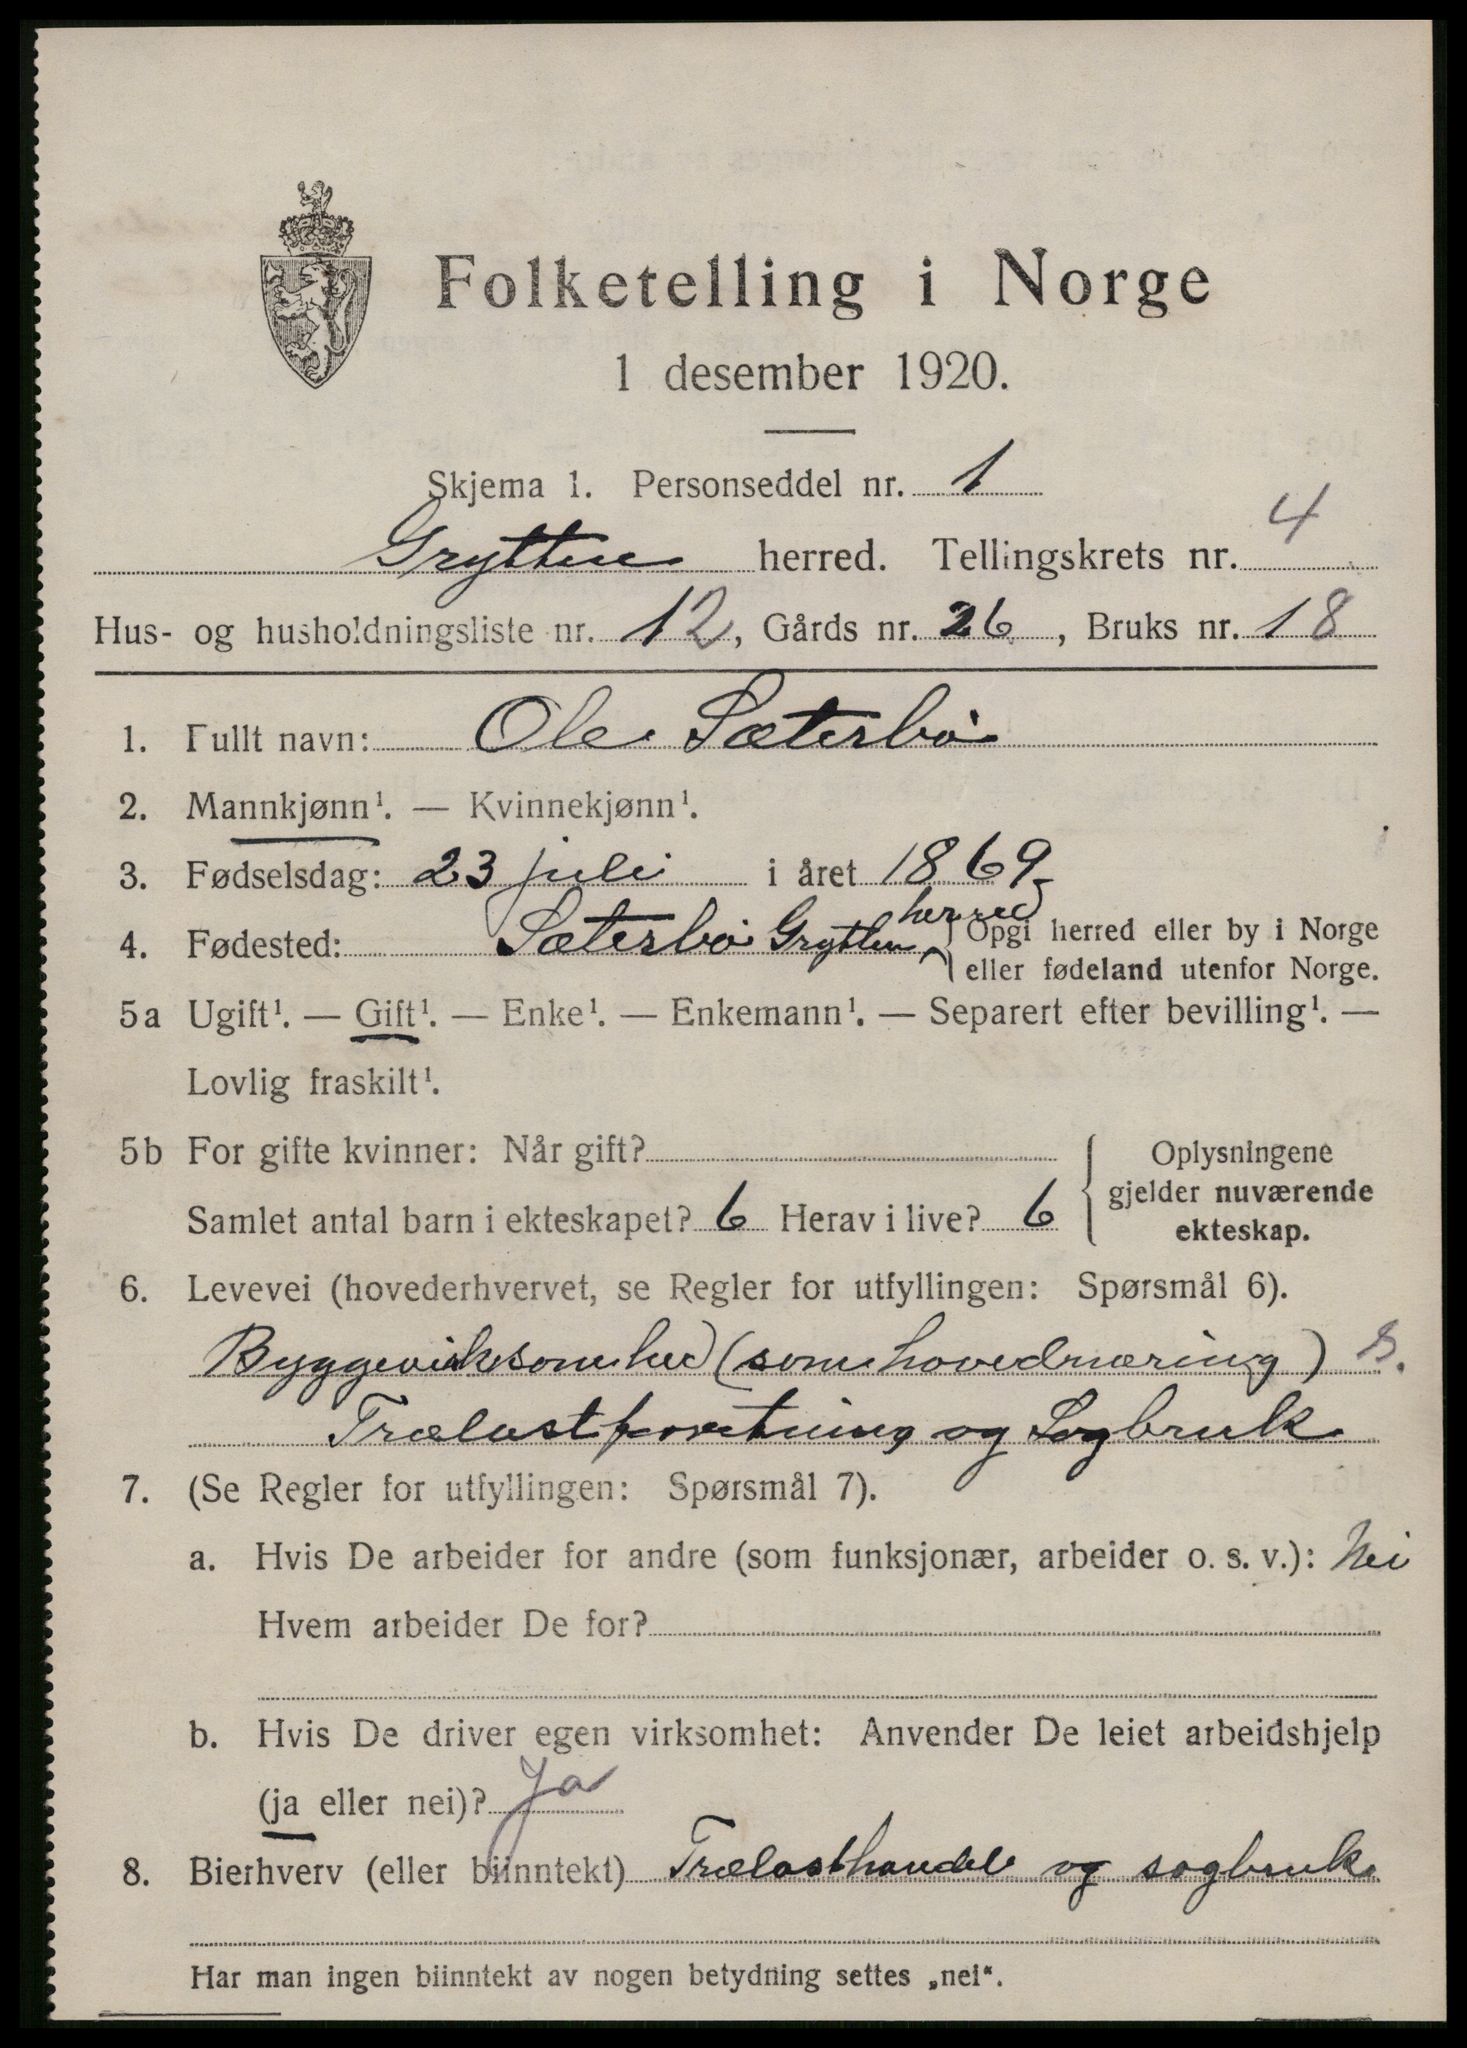 Folketelling i Norge
1 desember 1920.
Skjema 1. Personseddel nr. 1
Grytten herred. Tellingskrets nr. 4
Hus- og husholdningsliste nr. 12, Gårds nr. 26, Bruks nr. 18
1. Fullt navn: Ole Sæterbø
2. Mannkjønn¹. — Kvinnekjønn¹.
3. Fødselsdag: 23 juli i året 1869
4. Fødested: Sæterbø Grytten herred } Opgi herred eller by i Norge
eller fødeland utenfor Norge.
5a Ugift¹. — Gift¹. — Enke¹. — Enkemann¹. — Separert efter bevilling¹. —
Lovlig fraskilt¹.
5b For gifte kvinner: Når gift?
Samlet antal barn i ekteskapet? 6 Herav i live? 6
{ Oplysningene
gjelder nuværende
ekteskap.
6. Levevei (hovederhvervet, se Regler for utfyllingen: Spørsmål 6).
Byggevirksomhed (som hovednæring)
Trælastforretning og Sagbruk
7. (Se Regler for utfyllingen: Spørsmål 7).
a. Hvis De arbeider for andre (som funksjonær, arbeider o. s. v.): Nei
Hvem arbeider De for?
b. Hvis De driver egen virksomhet: Anvender De leiet arbeidshjelp
(ja eller nei)? Ja
8. Bierhverv (eller biinntekt) Trælasthandel og sagbruk
Har man ingen biinntekt av nogen betydning settes „nei“.